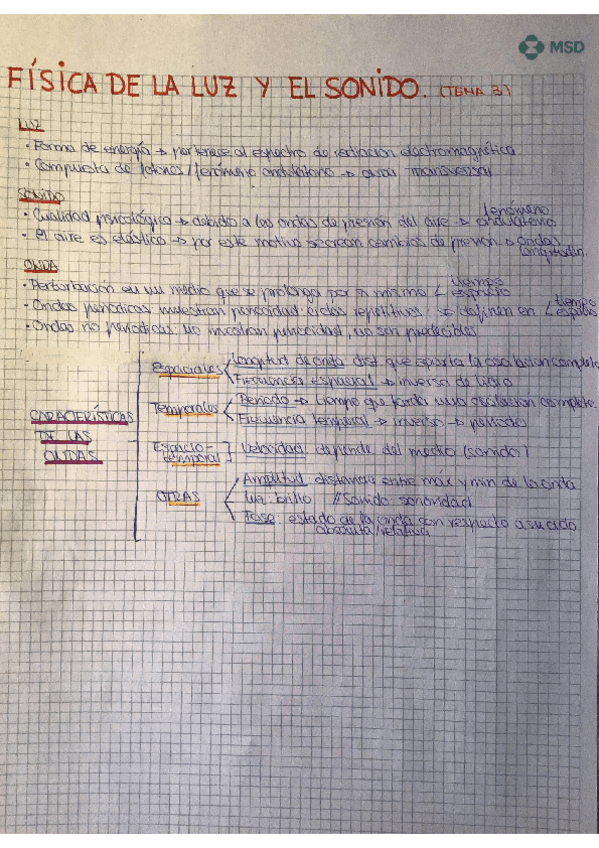 MSD
FÍSICA DE LA LUZ Y EL SONIDO. (TEMA 3)
LUZ
· Forma de energía → pertenece al espectro de radiación electromagnética
· Compuesta de fotones / fenómeno ondulatorio → ondas transversal
SONIDO
· Cualidad psicológica → debido a las ondas de presión del aire → fenómeno ondulatorio
· El aire es elástico → por este motivo se crean cambios de presión → ondas longitudin.
ONDA
· Perturbación en un medio que se prolonga por sí mismo < tiempo espacio
· Ondas periódicas muestran periodicidad: ciclos repetitivos se definen en < tiempo espacio
· Ondas no periódicas: no muestran periodicidad, no son predecibles
CARACTERÍSTICAS DE LAS ONDAS
Espaciales
Longitud de onda dist. que la oscilación complete
Frecuencia espacial → inversa de
Temporales
Periodo → tiempo que tarda una oscilación complete.
Frecuencia temporal → inverso → periodo
Espacio-temporal] Velocidad: depende del medio (sonido)
OTRAS
Amplitud: distancia entre máx y min de la onda
Luz: brillo // Sonido: sonoridad
Fase: estado de la onda con respecto a su ciclo
absoluta/relativa